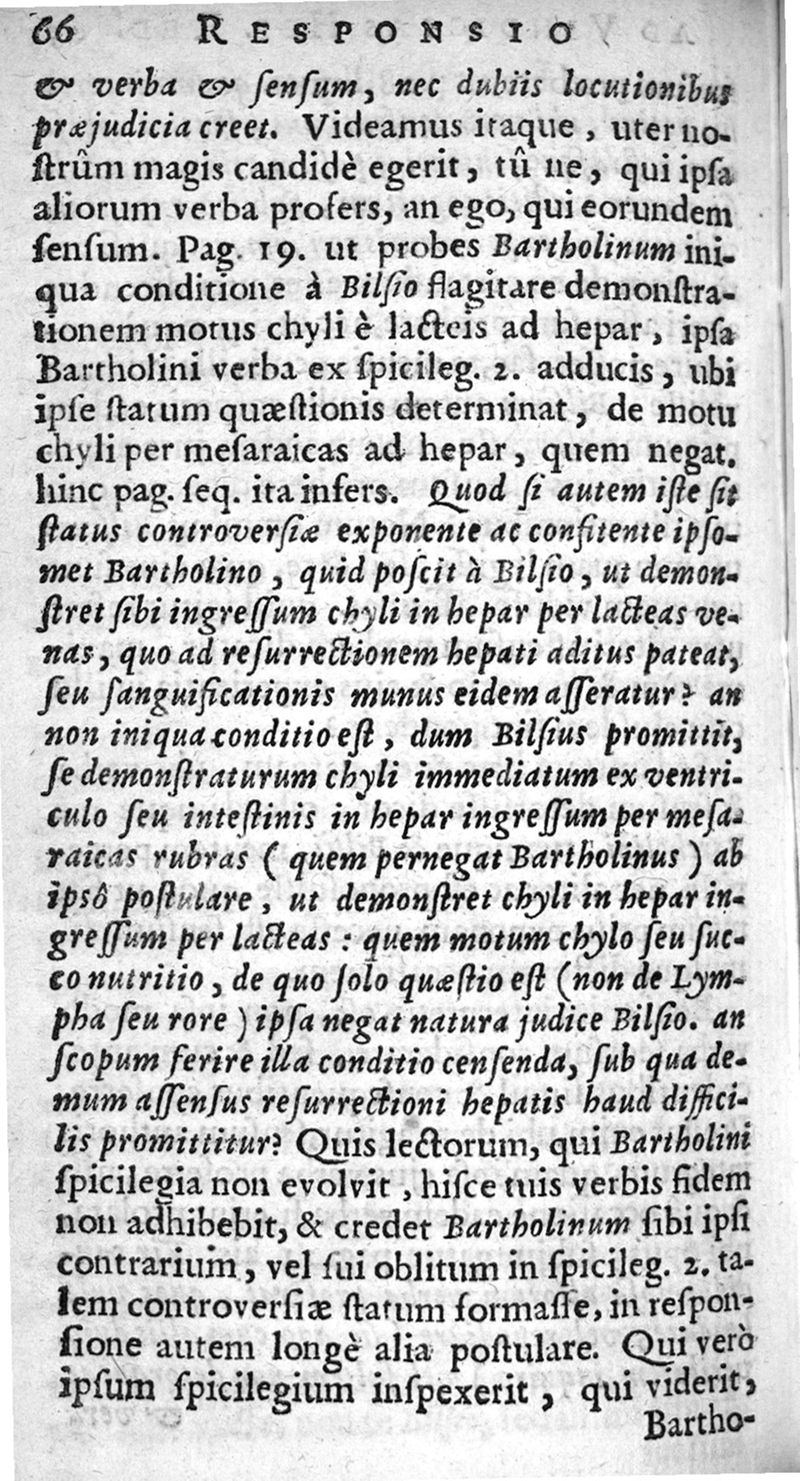 66 RESPONSIO
& verba & ſenſum, nec dubiis locutionibus
præjudicia creet. Videamus itaque, uter no-
ſtrûm magis candidè egerit, tû ne, qui ipſa
aliorum verba profers, an ego, qui eorundem
ſenſum. Pag. 19. ut probes Bartholinum ini-
qua conditione à Bilſio flagitare demonſtra-
tionem motus chyli è lacteis ad hepar, ipſa
Bartholini verba ex ſpicileg. 2. adducis, ubi
ipſe ſtatum quæſtionis determinat, de motu
chyli per meſaraicas ad hepar, quem negat.
hinc pag. ſeq. ita infers. Quod ſi autem iſte ſit
ſtatus controverſiæ exponente ac confitente ipſo-
met Bartholino, quid poſcit à Bilſio, ut demon-
ſtret ſibi ingreſſum chyli in hepar per lacteas ve-
nas, quo ad reſurrectionem hepati aditus pateat,
ſeu ſanguificationis munus eidem aſſeratur? an
non iniqua conditio eſt, dum Bilſius promittit,
ſe demonſtraturum chyli immediatum ex ventri-
culo ſeu inteſtinis in hepar ingreſſum per meſa-
raicas rubras (quem pernegat Bartholinus) ab
ipsô poſtulare, ut demonſtret chyli in hepar in-
greſſum per lacteas: quem motum chylo ſeu ſuc-
co nutritio, de quo ſolo quæſtio eſt (non de Lym-
pha ſeu rore) ipſa negat natura judice Bilſio. an
ſcopum ferire illa conditio cenſenda, ſub qua de-
mum aſſenſus reſurrectioni hepatis haud diffici-
lis promittitur? Quis lectorum, qui Bartholini
ſpicilegia non evolvit, hiſce tuis verbis fidem
non adhibebit, & credet Bartholinum ſibi ipſi
contrarium, vel ſui oblitum in ſpicileg. 2. ta-
lem controverſiæ ſtatum formaſſe, in reſpon-
ſione autem longè alia poſtulare. Qui verò
ipſum ſpicilegium inſpexerit, qui viderit,
Bartho-